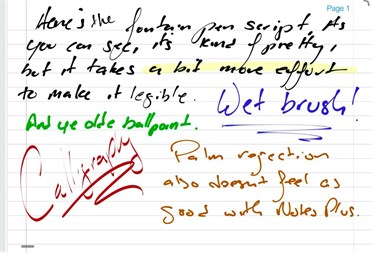 Page 1
Here's the fountain pen script. As
you can see, it's kind of pretty,
but it takes a bit more effort
to make it legible.
Wet brush!
And ye olde ballpoint.
Calligraphy
Palm rejection
also doesn't feel as
good with Notes Plus.